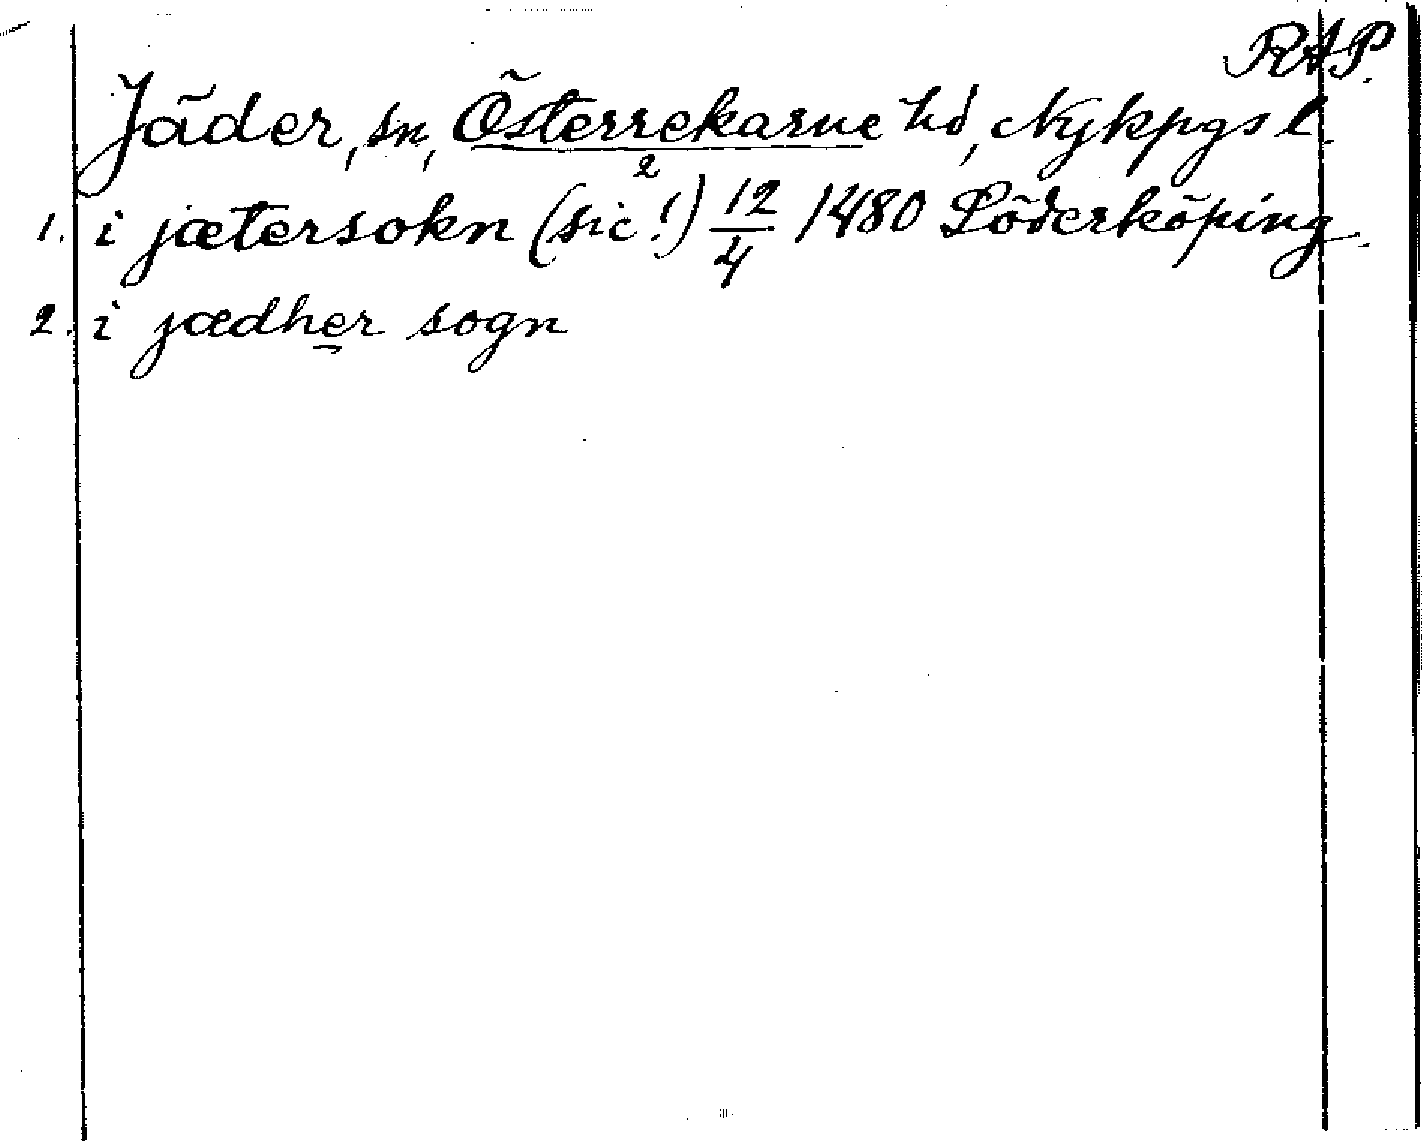 RAP.
Jäder, sn, Österrekarne hd, Nykpgs l.
2
1. i jætersokn (sic!) 12/4 1480 Söderköping.
2. i jædher sogn